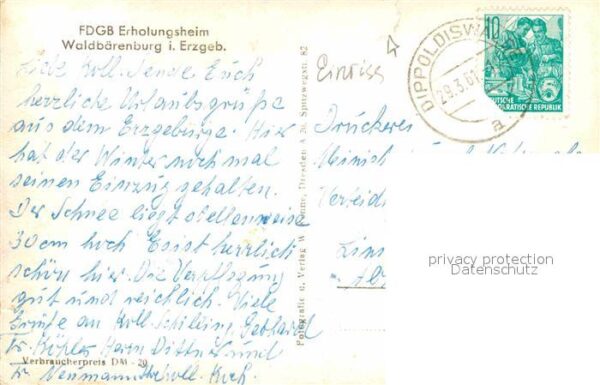 FDGB Erholungsheim
Waldbärenburg i. Erzgeb.
Liebe Koll. Sende Euch
herzliche Urlaubsgrüße
aus dem Erzgebirge. Hier
hat der Winter noch mal
seinen Einzug gehalten.
Der Schnee liegt stellenweise
30 cm hoch Es ist herrlich
schön hier. Die Verpflegung
gut und reichlich. Viele
Grüße an Koll. Schilling, Gebhardt
Köhler Herrn Dittrich und
Neumann Koll. Koch.
Verbraucherpreis DM -20
Fotografie u. Verlag W. Dresden A 20, Spitzwegstr. 82
Einriss
DIPPOLDISWA
29.3.61
a
10
DEUTSCHE
DEMOKRATISCHE REPUBLIK
Druckerei
Heinrich
privacy protection
Datenschutz